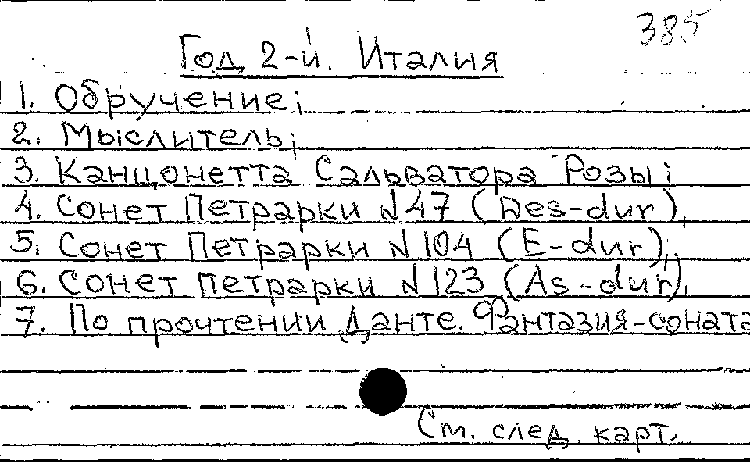 385
Год 2-й. Италия
1. Обручение;
2. Мыслитель;
3. Канцонетта Сальватора Розы;
4. Сонет Петрарки №47 (Des-dur),
5. Сонет Петрарки №104 (E-dur);
6. Сонет Петрарки №123 (As-dur),
7. По прочтении Данте. Фантазия-соната
См. след. карт.